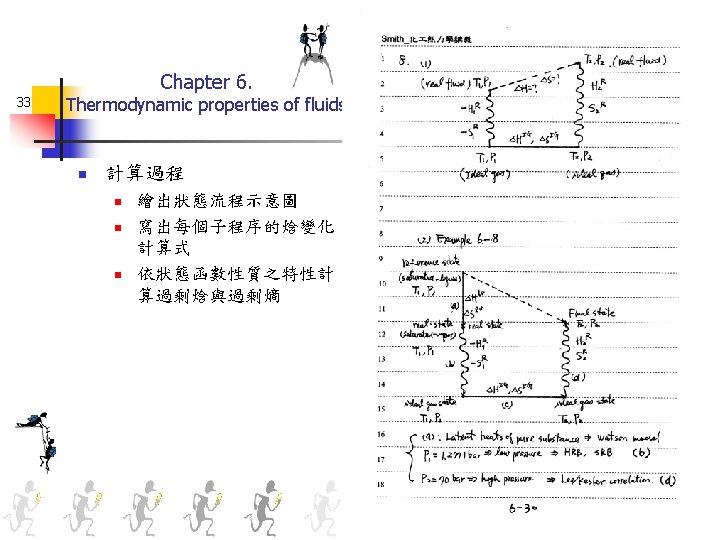 33
Chapter 6.
Thermodynamic properties of fluids
計算過程
繪出狀態流程示意圖
寫出每個子程序的焓變化
計算式
依狀態函數性質之特性計
算過剩焓與過剩熵
Smith_化工熱力學講義
1 8. (1) T₂,P₂ (real fluid)
2 (real fluid) T₁,P₁ ΔH=? ΔS=?
3 -H₁ᴿ H₂ᴿ
4 -S₁ᴿ S₂ᴿ
ΔHⁱᵍ, ΔSⁱᵍ
5 T₁,P₁ T₂,P₂
6 (ideal gas) (ideal gas)
7
8 (2) Example 6-8
9 reference state
10 (saturated-liquid)
T₁,P₁ ΔHˡᵛ
11 (a) ΔSˡᵛ Final state
real-state real state T₂,P₂
12 (saturated-vapor) -H₁ᴿ H₂ᴿ
13 T₁,P₁ (b) -S₁ᴿ S₂ᴿ
14 (d)
ΔHⁱᵍ, ΔSⁱᵍ
15 ideal gas state (c) ideal gas state
T₁,P₁ T₂,P₂
16 (a): Latent heats of pure substances ⇒ Watson model
17 P₁ = 1.2771 bar ⇒ low pressure ⇒ HRB, SRB (b)
18 P₂ = 70 bar ⇒ high pressure ⇒ Lee/Kesler correlation. (d)
6-30